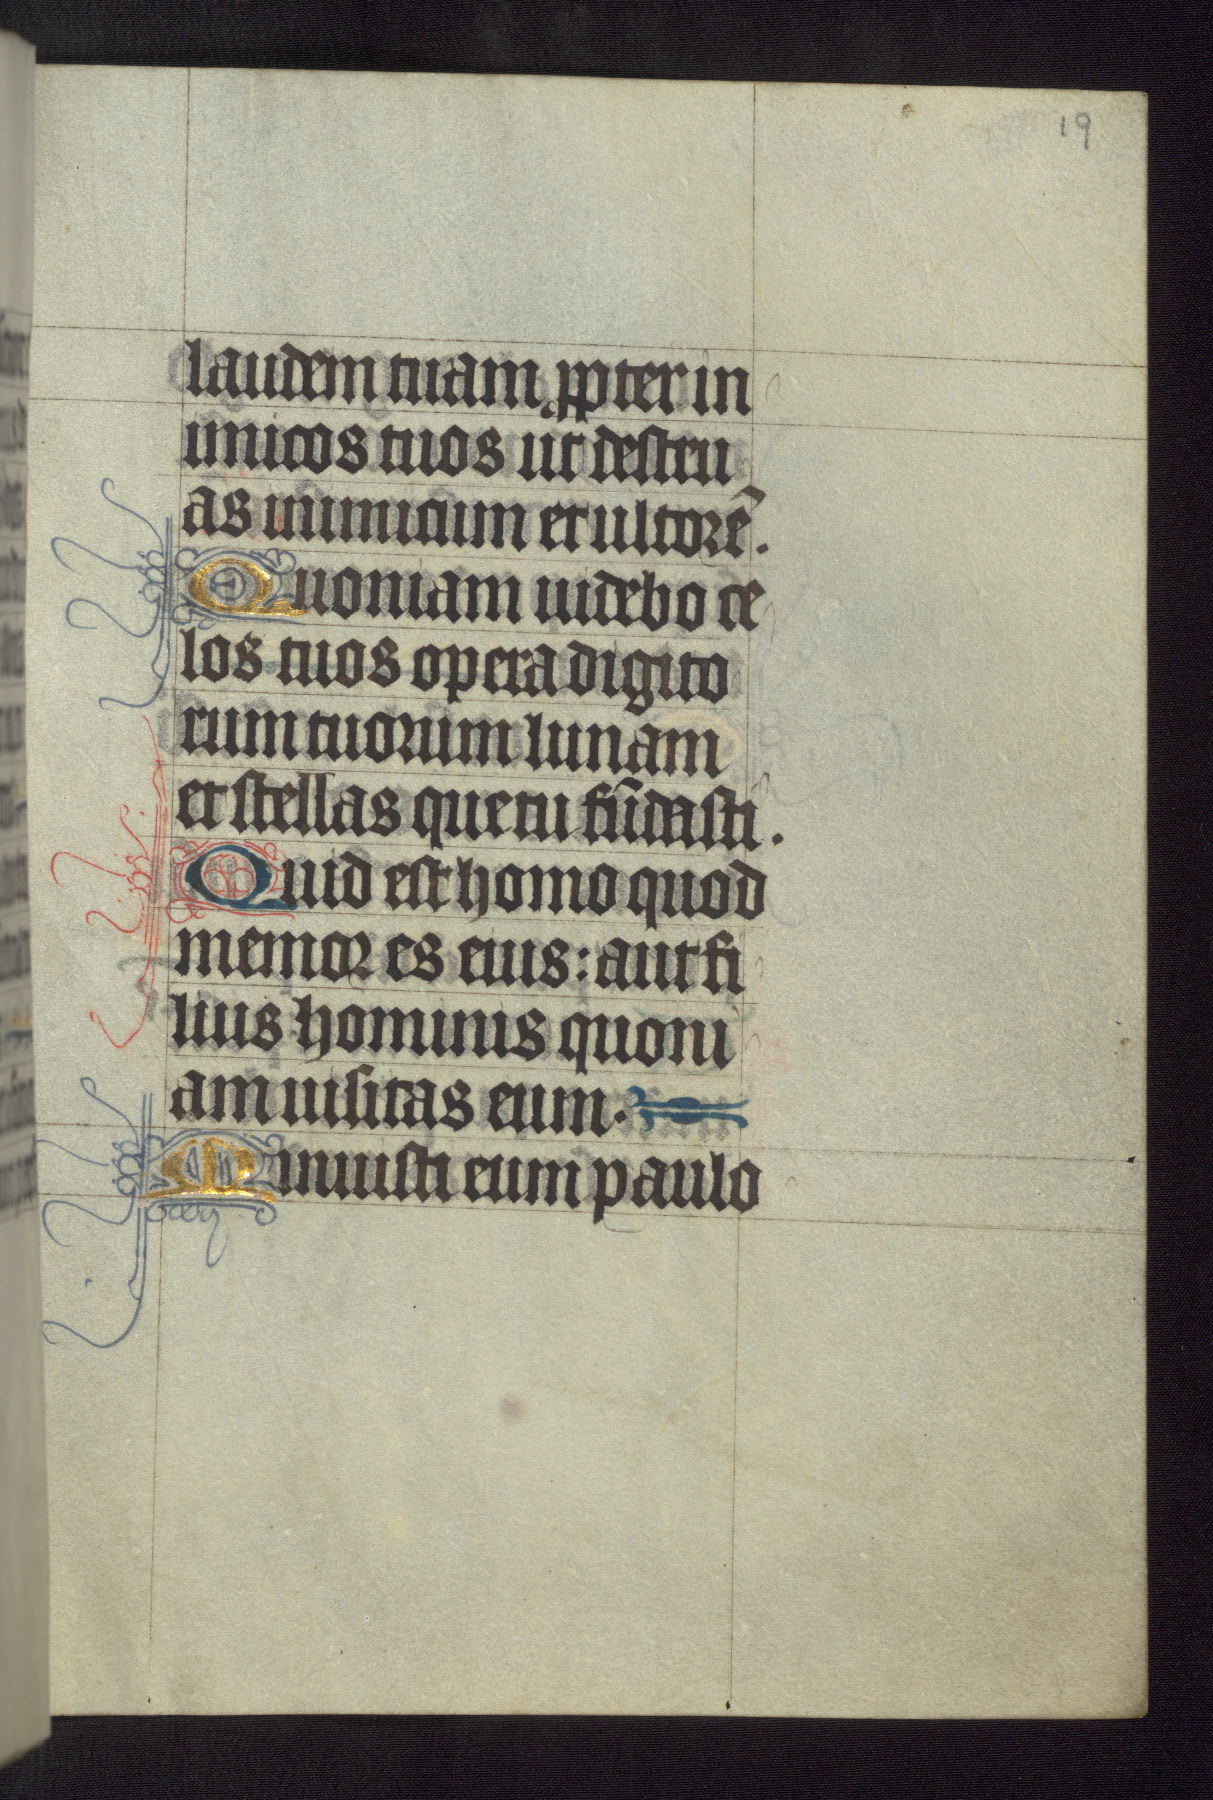 19
laudem tuam ꝓpter in
imicos tuos ut destru
as inimicum et ultorē.
Quoniam uidebo ce
los tuos opera digito
rum tuorum lunam
et stellas que tu fūdasti.
Quid est homo quod
memor es eius: aut fi
lius hominis quoni
am uisitas eum.
Minuisti eum paulo